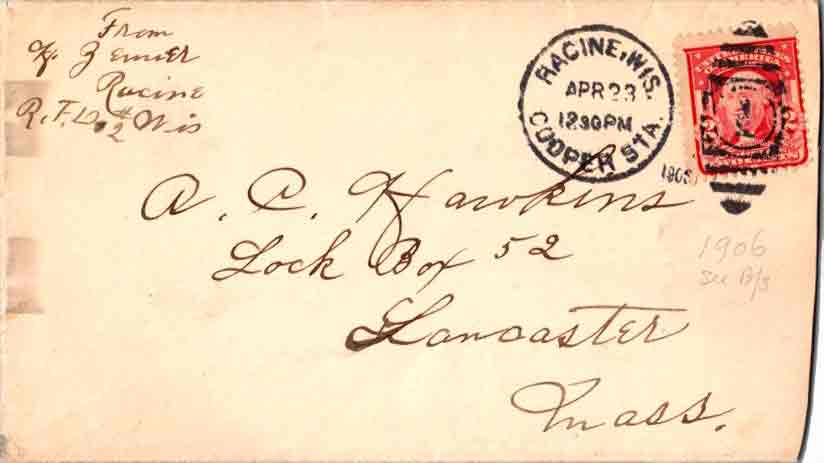 From
Zenner
Racine
R.F.D. #2 Wis
RACINE, WIS.
APR 23
12 30 PM
COOPER STA.
1906
A. C. Hawkins
Lock Box 52
Lancaster
Mass.
1906
see B/S